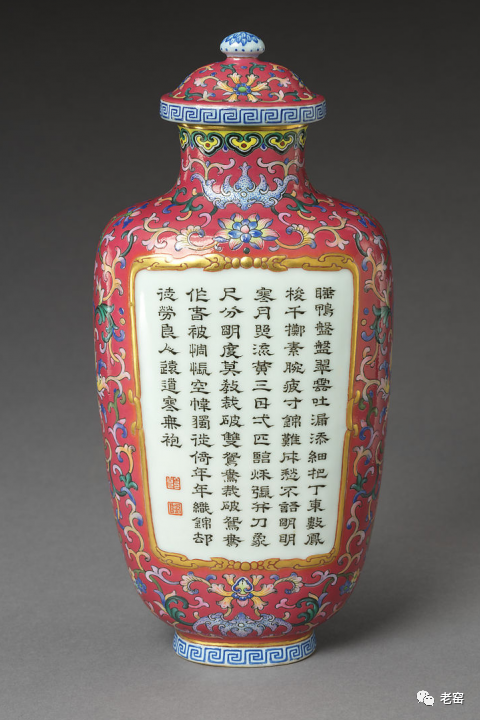 睡鴨盤盤翠雲吐漏添細把丁東數鳳
梭千擲素腕疲寸錦難成愁不語明明
寒月照流黃三日匹張并刀象
尺分明度莫教裁破雙鴛鴦裁破鴛鴦
作書被惆悵空幃獨徙倚年年織錦却
徒勞良人遠道寒無袍
老窑